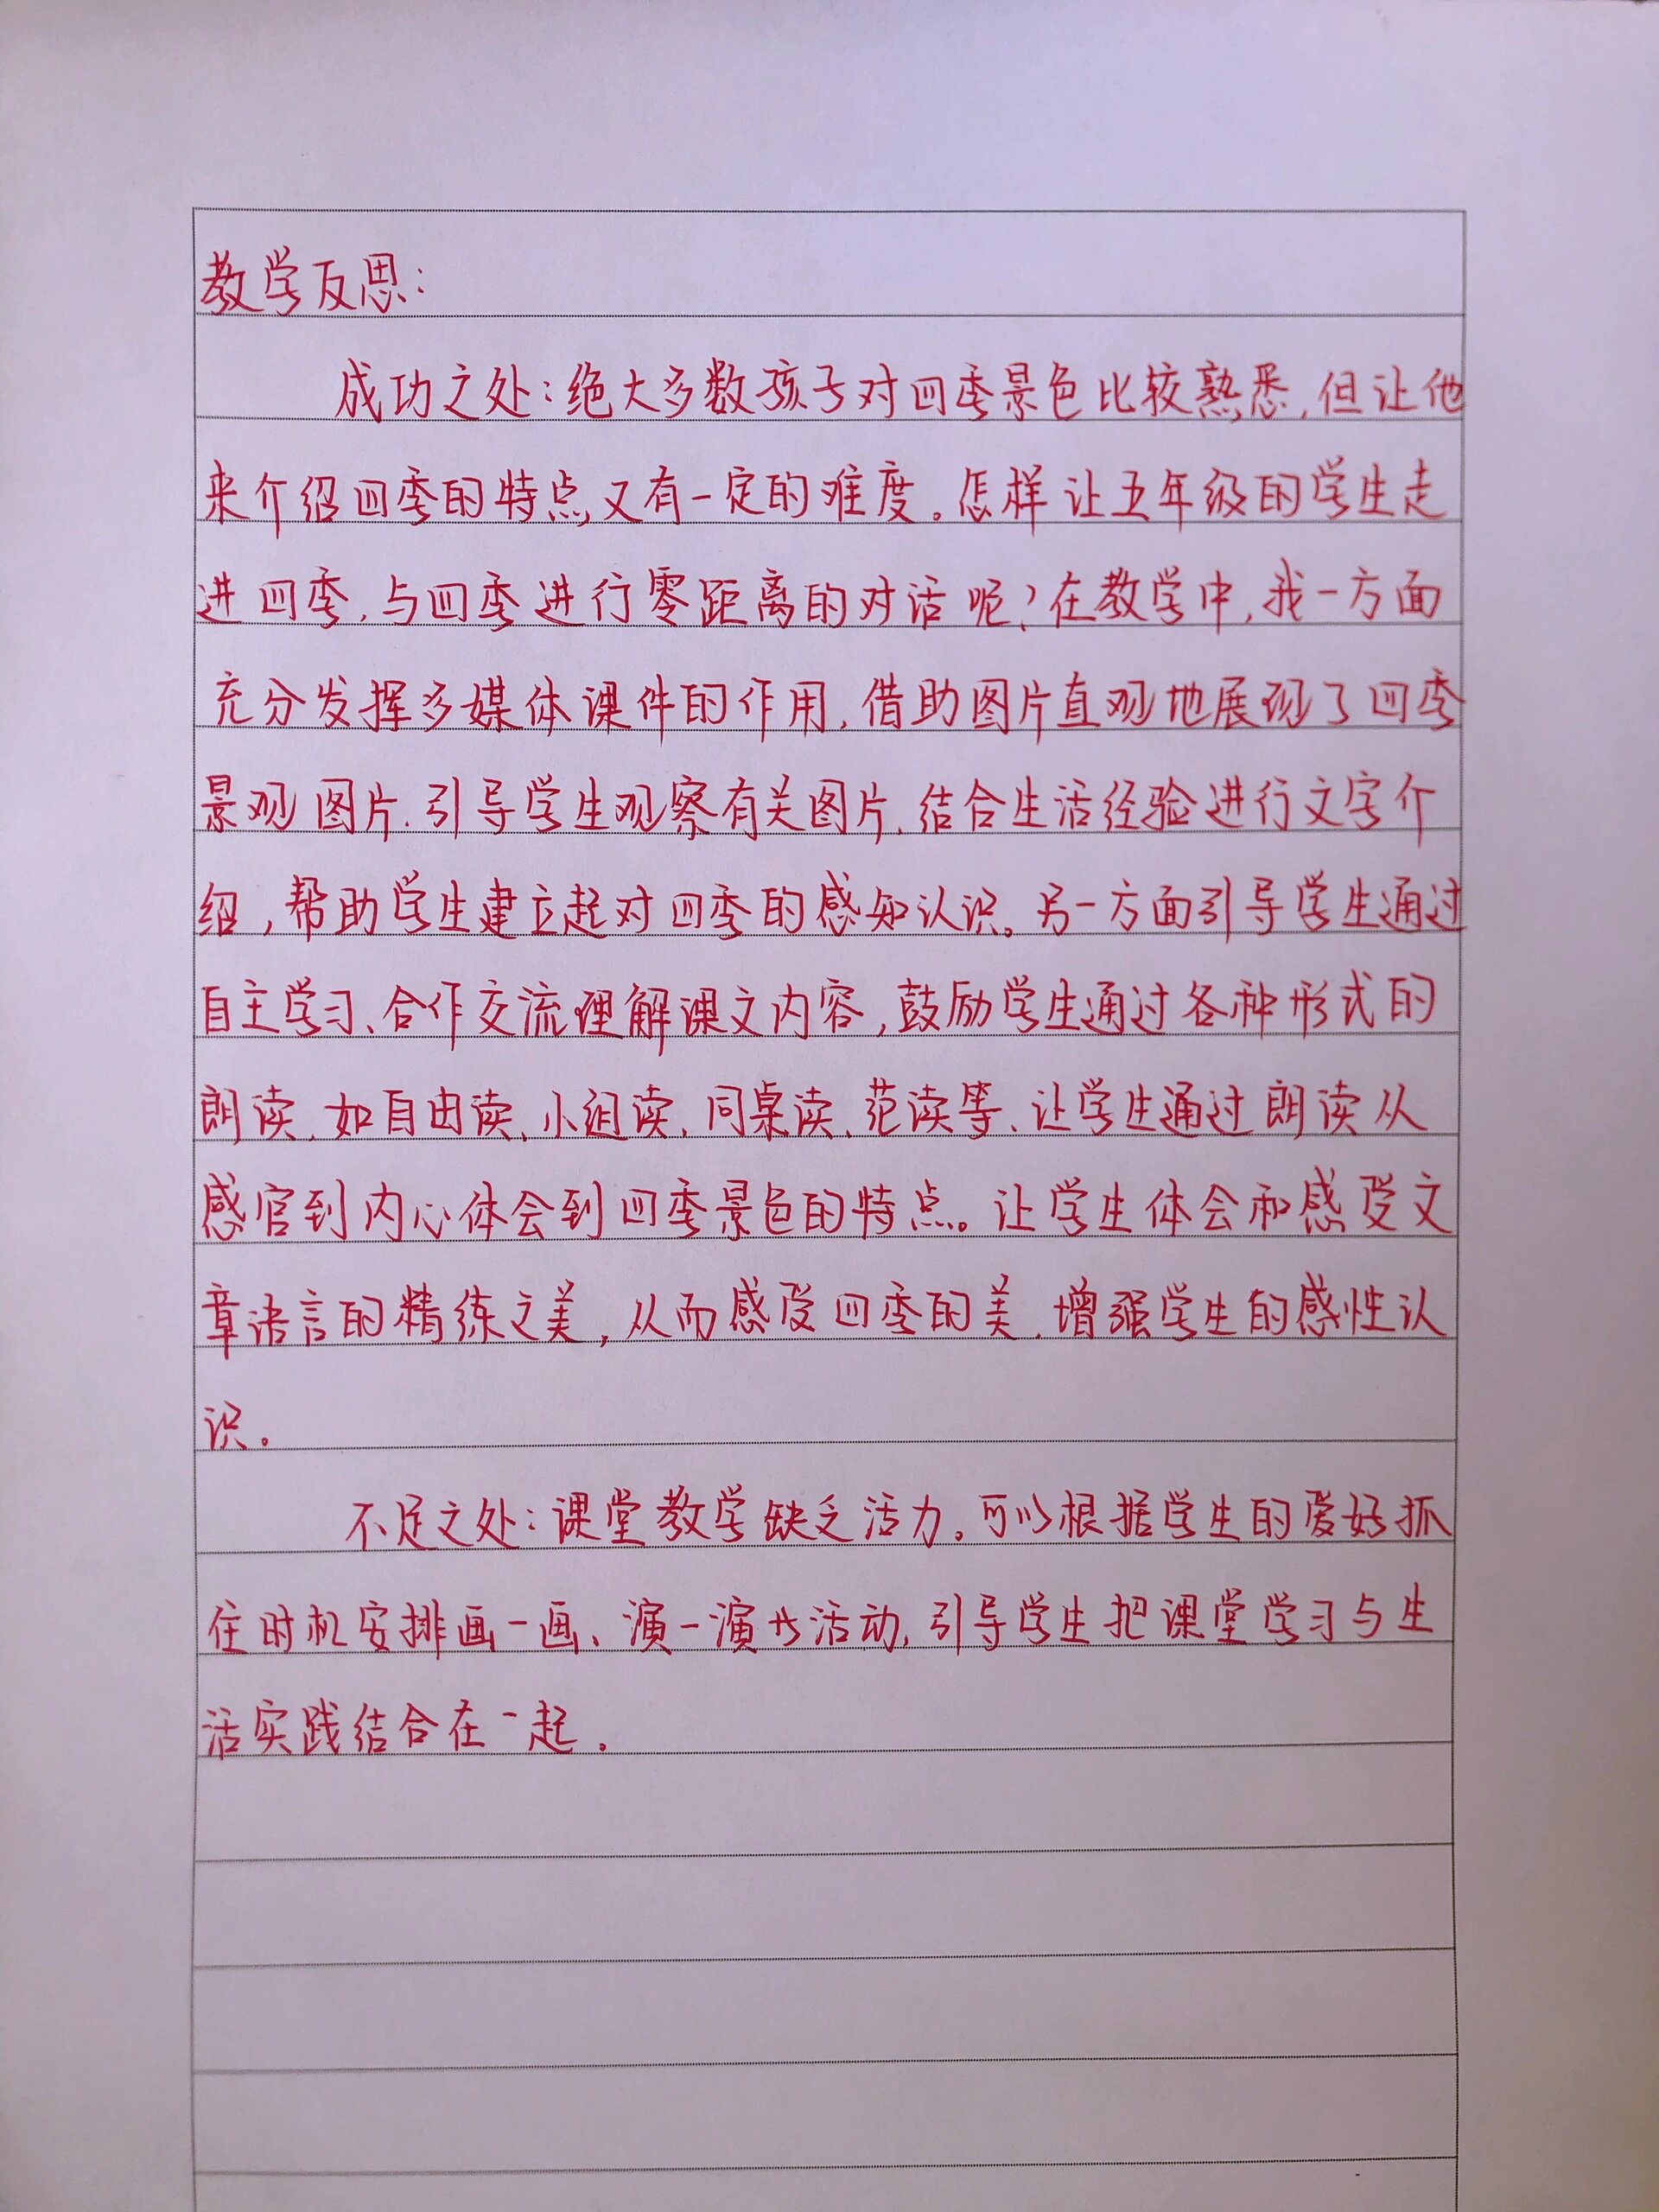 教学反思：
成功之处：绝大多数孩子对四季景色比较熟悉，但让他
来介绍四季的特点，又有一定的难度。怎样让五年级的学生走
进四季，与四季进行零距离的对话呢？在教学中，我一方面
充分发挥多媒体课件的作用，借助图片直观地展现了四季
景观图片，引导学生观察有关图片，结合生活经验进行文字介
绍，帮助学生建立起对四季的感知认识。另一方面引导学生通过
自主学习、合作交流理解课文内容，鼓励学生通过各种形式的
朗读，如自由读、小组读、同桌读、范读等、让学生通过朗读从
感官到内心体会到四季景色的特点。让学生体会和感受文
章语言的精练之美，从而感受四季的美，增强学生的感性认
识。
不足之处：课堂教学缺乏活力。可以根据学生的爱好抓
住时机安排画一画、演一演的活动，引导学生把课堂学习与生
活实践结合在一起。